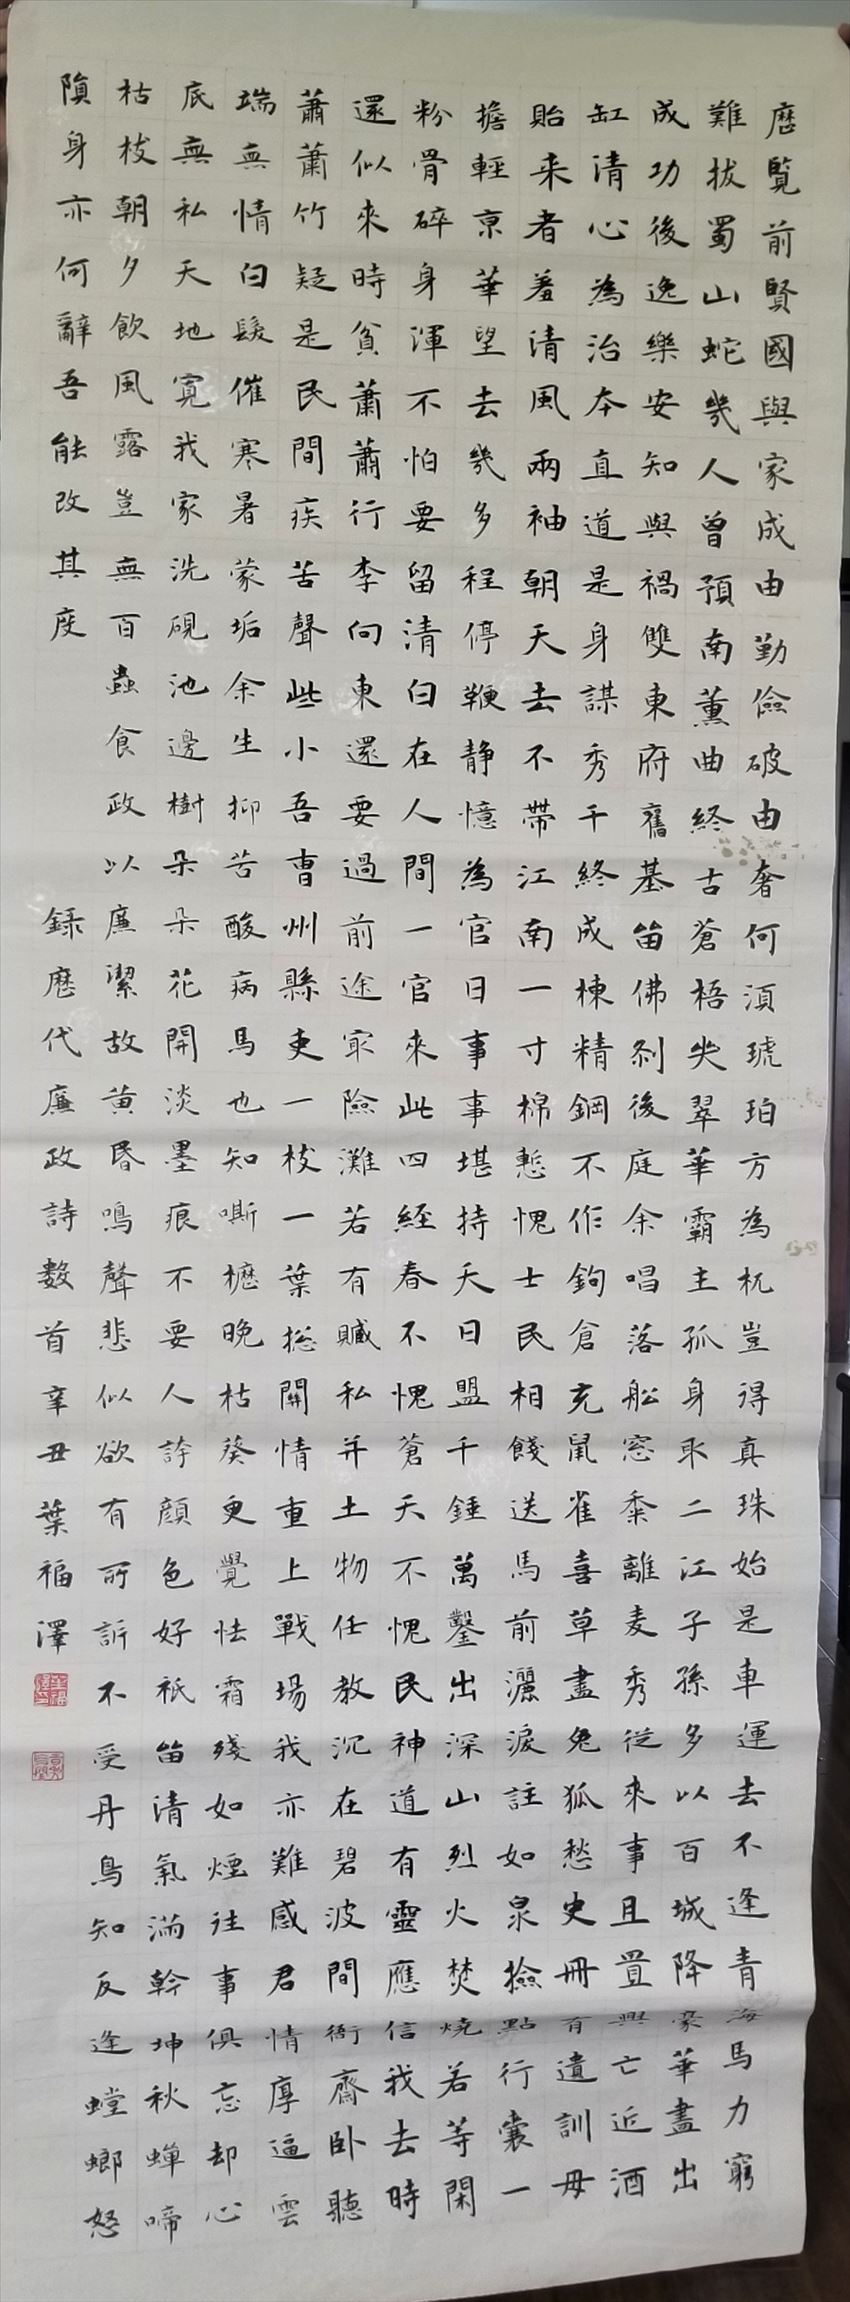 歷覽前賢國與家成由勤儉破由奢何須琥珀方為枕豈得真珠始是車運去不逢青海馬力窮
難拔蜀山蛇幾人曾預南薰曲終古蒼梧哭翠華霸主孤身取二江子孫多以百城降豪華盡出
成功後逸樂安知與禍雙東府舊基留佛剎後庭余唱落船窓黍離麦秀從來事且置興亡近酒
缸清心為治本直道是身謀秀干終成棟精鋼不作鉤倉充鼠雀喜草盡兔狐愁史冊有遺訓毋
貽来者羞清風兩袖朝天去不帶江南一寸棉慙愧士民相餞送馬前灑淚註如泉撿點行囊一
擔輕京華望去幾多程停鞭静憶為官日事事堪持天日盟千錘萬鑿出深山烈火焚燒若等閑
粉骨碎身渾不怕要留清白在人間一官來此四經春不愧蒼天不愧民神道有靈應信我去時
還似來時貧蕭蕭行李向東還要過前途冣險灘若有贓私并土物任教沉在碧波間衙齋卧聽
蕭蕭竹疑是民間疾苦聲些小吾曹州縣吏一枝一葉捴關情重上戰場我亦難感君情厚逼雲
端無情白髮催寒暑蒙垢余生抑苦酸病馬也知嘶櫪晚枯葵更覺怯霜殘如煙往事俱忘却心
底無私天地寛我家洗硯池邊樹朵朵花開淡墨痕不要人誇顔色好衹留清氣滿乾坤秋蟬啼
枯枝朝夕飲風露豈無百蟲食政以廉潔故黄昏鳴聲悲似欲有所訴不受丹鳥知反逢螳螂怒
隕身亦何辭吾能改其度
録歷代廉政詩数首辛丑葉福澤